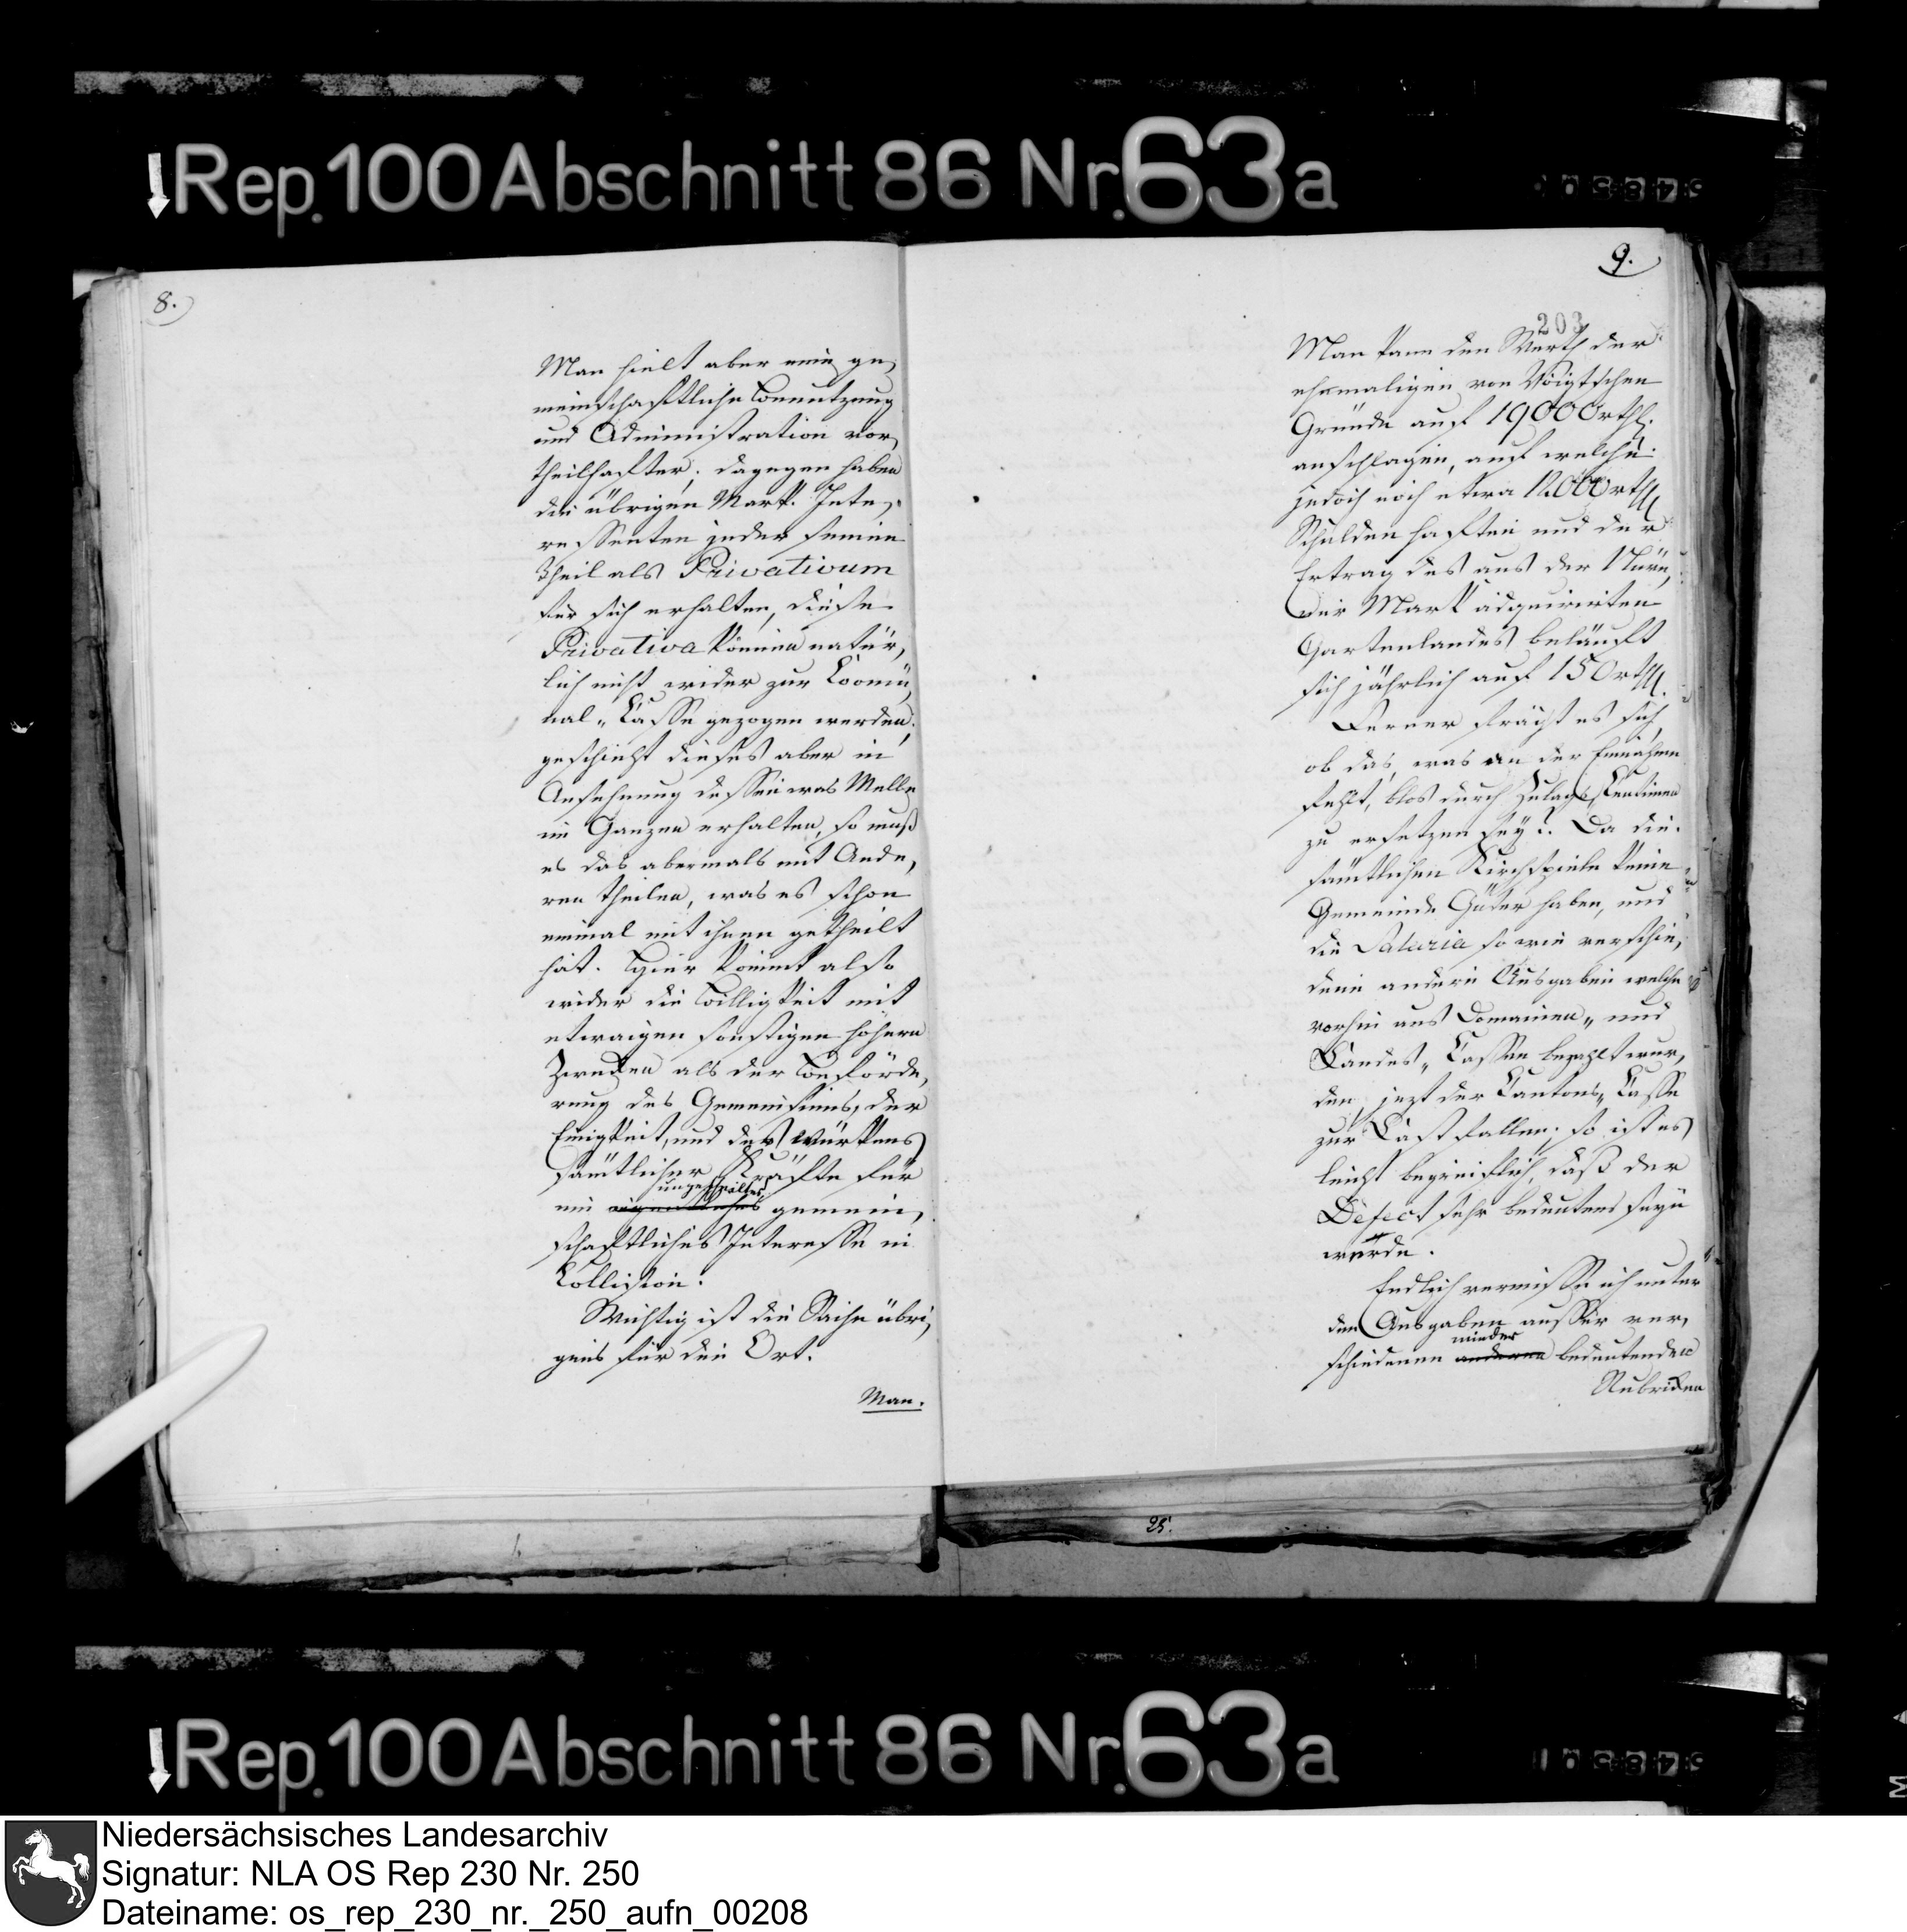 Rep. 100 Abschnitt 86 Nr. 63a
8.
Man hielt aber eine ge,
meinschaftliche Benutzung
und Administration vor,
theilhafter; dagegen haben
die übrigen Mark. Inte,
ressenten jeder seinen
Theil als Privativum
für sich erhalten, diese
Privativa können natür,
lich nicht wider zur Comū,
nal„ Casse gezogen werden;
geschieht dieses aber in
Ansehnung dessen was Melle
im Ganzen erhalten, so muß
es das abermals mit Ande,
ren theilen, was es schon
einmal mit ihnen getheilt
hat. Hier kommt also
wider die Billigkeit mit
etwaigen sonstigen höhern
Zwecken als der Beförde,
rung des Gemeinsinns, der
Einigkeit, und des würkens
sämtlicher Kräfte für
ungetheiltes
ein gemein,
schaftliches Interesse in
Collision.
Wichtig ist die Sache übri,
gens für den Ort.
Man.
9.
203
Man kann den Werth der
ehemaligen von Voigtschen
Gründe auf 19000 rthl.
anschlagen, auf welche
jedoch noch etwa 12000 rthl
Schulden haften und der
Ertrag des aus der
der Mark adquirirten
Gartenlandes beläuft
sich jährlich auf 150 rthl.
Ferner frägt es sich,
ob das, was an der Einnahme
fehlt, blos durch Zulags Centimen
zu ersetzen sey?. Da die
sämtlichen Kirchspiele keine
Gemeinde Güter haben, und
die Salaria so wie verschie,
dene andere Ausgaben welche
vorhin aus Domainen„ und
Landes„ Cassen bezahlt wur,
den, jezt der Cantons„ Casse
zur Last fallen; so ist es
leicht begreiflich, daß der
Defect sehr bedeutend seyn
würde.
Endlich vermisse ich unter
den Ausgaben ausser ver,
minder
schiedenen anderen bedeutenden
Rubricken
25.
Rep. 100 Abschnitt 86 Nr. 63a
Niedersächsisches Landesarchiv
Signatur: NLA OS Rep 230 Nr. 250
Dateiname: os_rep_230_nr._250_aufn_00208